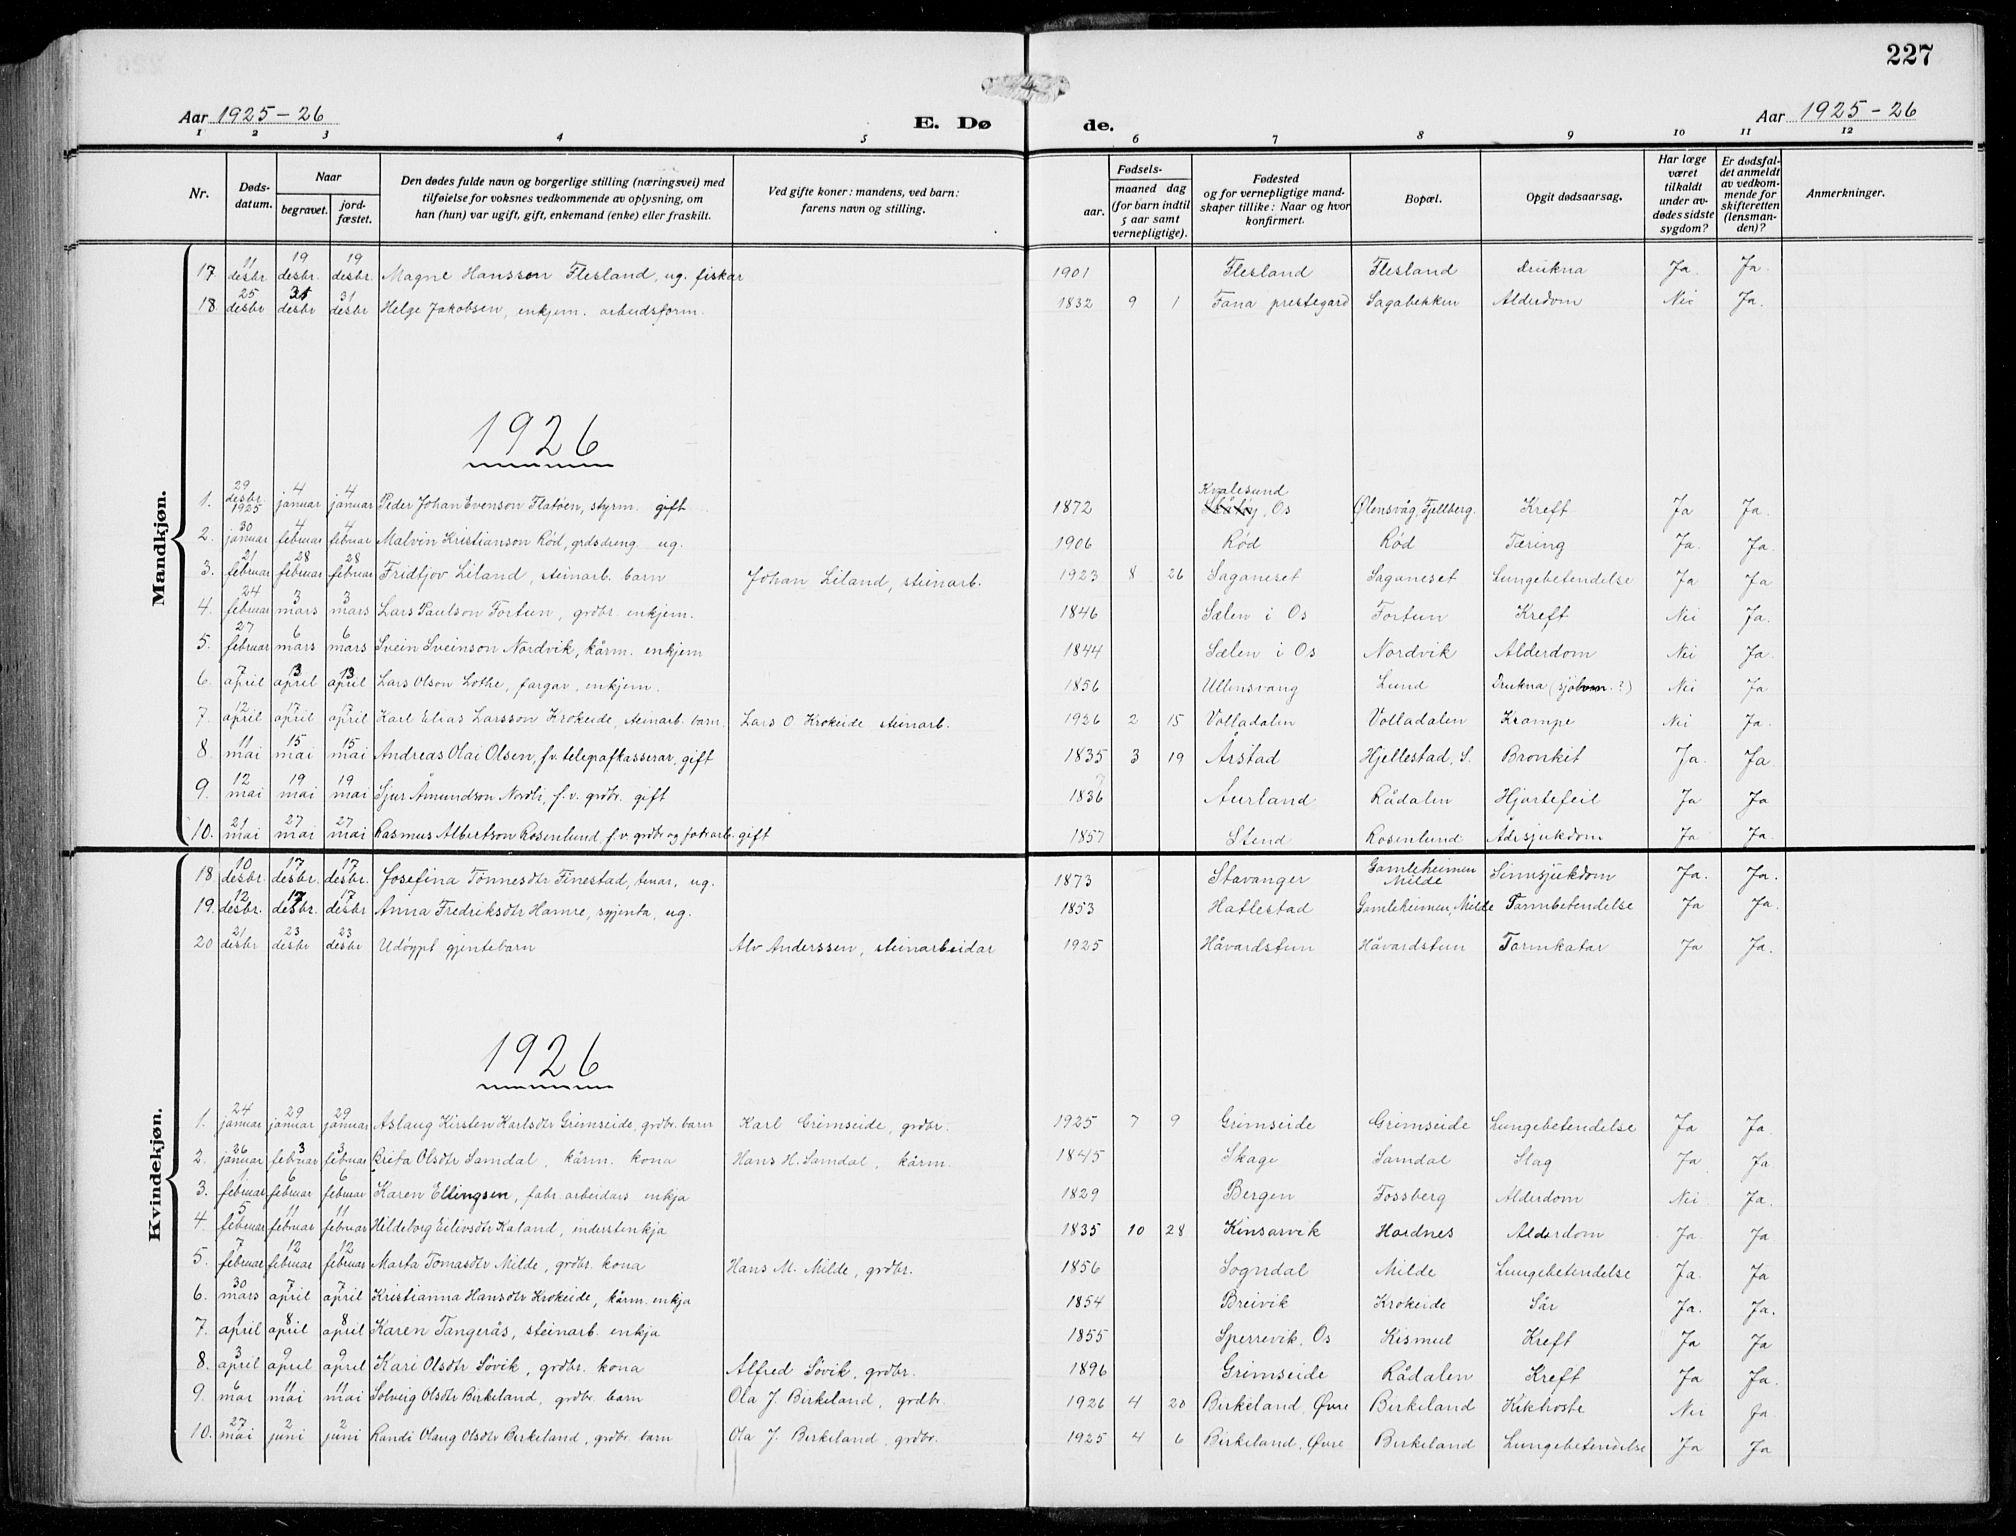 227
Aar 1925-26
E. Dø
de.
Aar 1925-26
1 2 3 4 5 6 7 8 9 10 11 12
Nr.
Døds-
datum.
Naar
begravet.
jord-
fæstet.
Den dødes fulde navn og borgerlige stilling (næringsvei) med
tilføielse for voksnes vedkommende av oplysning, om
han (hun) var ugift, gift, enkemand (enke) eller fraskilt.
Ved gifte koner: mandens, ved barn:
farens navn og stilling.
Fødsels-
aar.
maaned dag
(for barn indtil
5 aar samt
vernepligtige).
Fødested
og for vernepligtige mand-
skaper tillike: Naar og hvor
konfirmert.
Bopæl.
Opgit dødsaarsag.
Har læge
været
tilkaldt
under av-
dødes sidste
sygdom?
Er dødsfal-
det anmeldt
av vedkom-
mende for
skifteretten
(lensman-
den)?
Anmerkninger.
Mandkjøn.
17 11 desbr. 19 desbr. 19 desbr. Magne Hanssen Flesland, ug. fiskar 1901 Flesland Flesland Drukna Ja. Ja.
18. 25 desbr 31 desbr 31 desbr Helge Jakobsen, enkjem. arbeidsform. 1832 9 1 Fana prestegard Sagabekken Alderdom Nei Ja.
1926
1. 29 desbr. 1925 4 januar 4 januar Peder Johan Evenson Flatøen, styrm. gift 1872 Kvalesund, Os Ølensvåg, Fjellberg. Kreft Ja Ja.
2. 30 januar 4 februar 4 februar Malvin Kristianson Rød, grdsdreng ug. 1906 Rød Rød Tæring Ja. Ja.
3. 21 februar 28 februar 28 februar Fridtjov Liland, steinarb. barn Johan Liland, steinarb. 1923 8 26 Saganeset Saganeset Lungebetendelse Ja Ja
4. 24 februar 3 mars 3 mars Lars Paulson Fortun, grdbr. enkjem. 1846 Sælen i Os Fortun Kreft Nei Ja.
5. 27 februar 6 mars 6 mars Svein Sveinson Nordvik, kårm. enkjem 1844 Sælen i Os Nordvik Alderdom Nei Ja.
6. 7 april 13 april 13 april Lars Olson Lothe, fargar, enkjem. 1856 Ullensvang Lund Drukna (sjølvm.?) Nei Ja
7. 12 april 17 april 17 april Karl Elias Larsson Krokeide, steinarb. barn. Lars O. Krokeide steinarb. 1926 2 15 Volladalen Volladalen Krampe Nei Ja.
8. 11 mai 15 mai 15 mai Andreas Olai Olsen, f.v. telegrafkasserar, gift 1835 3 19 Årstad Hjellestad, S. Bronkit Ja. Ja
9. 12 mai 19 mai 19 mai Sjur Åmundson Nordli, f.v. grdbr. gift 1836 Aurland Rådalen Hjartefeil Ja Ja
10. 21 mai 27 mai 27 mai Rasmus Albertson Rosenlund, f.v. grdbr og fabr.arb. gift 1857 Stend Rosenlund Åresjukdom Ja Ja.
Kvindekjøn.
18 10 desbr. 17 desbr. 17 desbr. Josefina Tønnesdtr Finestad, tenar, ug. 1873 Stavanger Gamleheimen Milde Sinnsjukdom Ja. Ja.
19. 12 desbr. 17 desbr. 17 desbr Anna Fredriksdtr Hamre, syjenta, ug. 1853 Hatlestad Gamleheimen, Milde Tarmbetendelse Ja Ja.
20 21 desbr 23 desbr 23 desbr Udøypt gjentebarn Alv Anderssen, steinarbeidar 1925 Håvardstun Håvardstun Tarmkatar Ja Ja.
1926
1. 24 januar 29 januar 29 januar Aslaug Kirsten Karlsdtr Grimseide, grdbr. barn Karl Grimseide, grdbr. 1925 7 9 Grimseide Grimseide Lungebetendelse Ja Ja.
2. 26 januar 3 februar 3 februar Brita Olsdtr Samdal, kårm. kona Hans H. Samdal, kårm. 1845 Skage Samdal Slag Ja Ja
3. 1 februar 6 februar 6 februar Karen Ellingsen, fabr. arbeidars enkja 1829 Bergen Fossberg Alderdom Nei Ja.
4. 5 februar 11 februar 11 februar Hildeborg Eilivsdtr Kaland, inderstenkja 1835 10 28 Kinsarvik Hordnes Alderdom Ja. Ja
5. 7 februar 12 februar 12 februar Marta Tomasdtr Milde, grdbr. kona Hans M. Milde, grdbr. 1856 Sogndal Milde Lungebetendelse Ja. Ja
6. 30 mars 7 april 7 april Kristianna Hansdtr Krokeide, kårm. enkja 1854 Breivik Krokeide Sår Ja. Ja.
7. 1 april 8 april 8 april Karen Tangerås, steinarb. enkja 1855 Sperrevik, Os Kismul Kreft Ja Ja
8. 3 april 9 april 9 april Kari Olsdtr Søvik, grdbr. kona Alfred Søvik, grdbr. 1896 Grimseide Rådalen Kreft Ja Ja.
9. 6 mai 11 mai 11 mai Solveig Olsdtr Birkeland, grdbr. barn Ola J. Birkeland, grdbr. 1926 4 20 Birkeland, Øvre Birkeland Kikhoste Nei Ja
10. 27 mai 2 juni 2 juni Randi Olaug Olsdtr Birkeland, grdbr. barn Ola J. Birkeland, grdbr. 1925 4 6 Birkeland, Øvre Birkeland Lungebetendelse Ja Ja